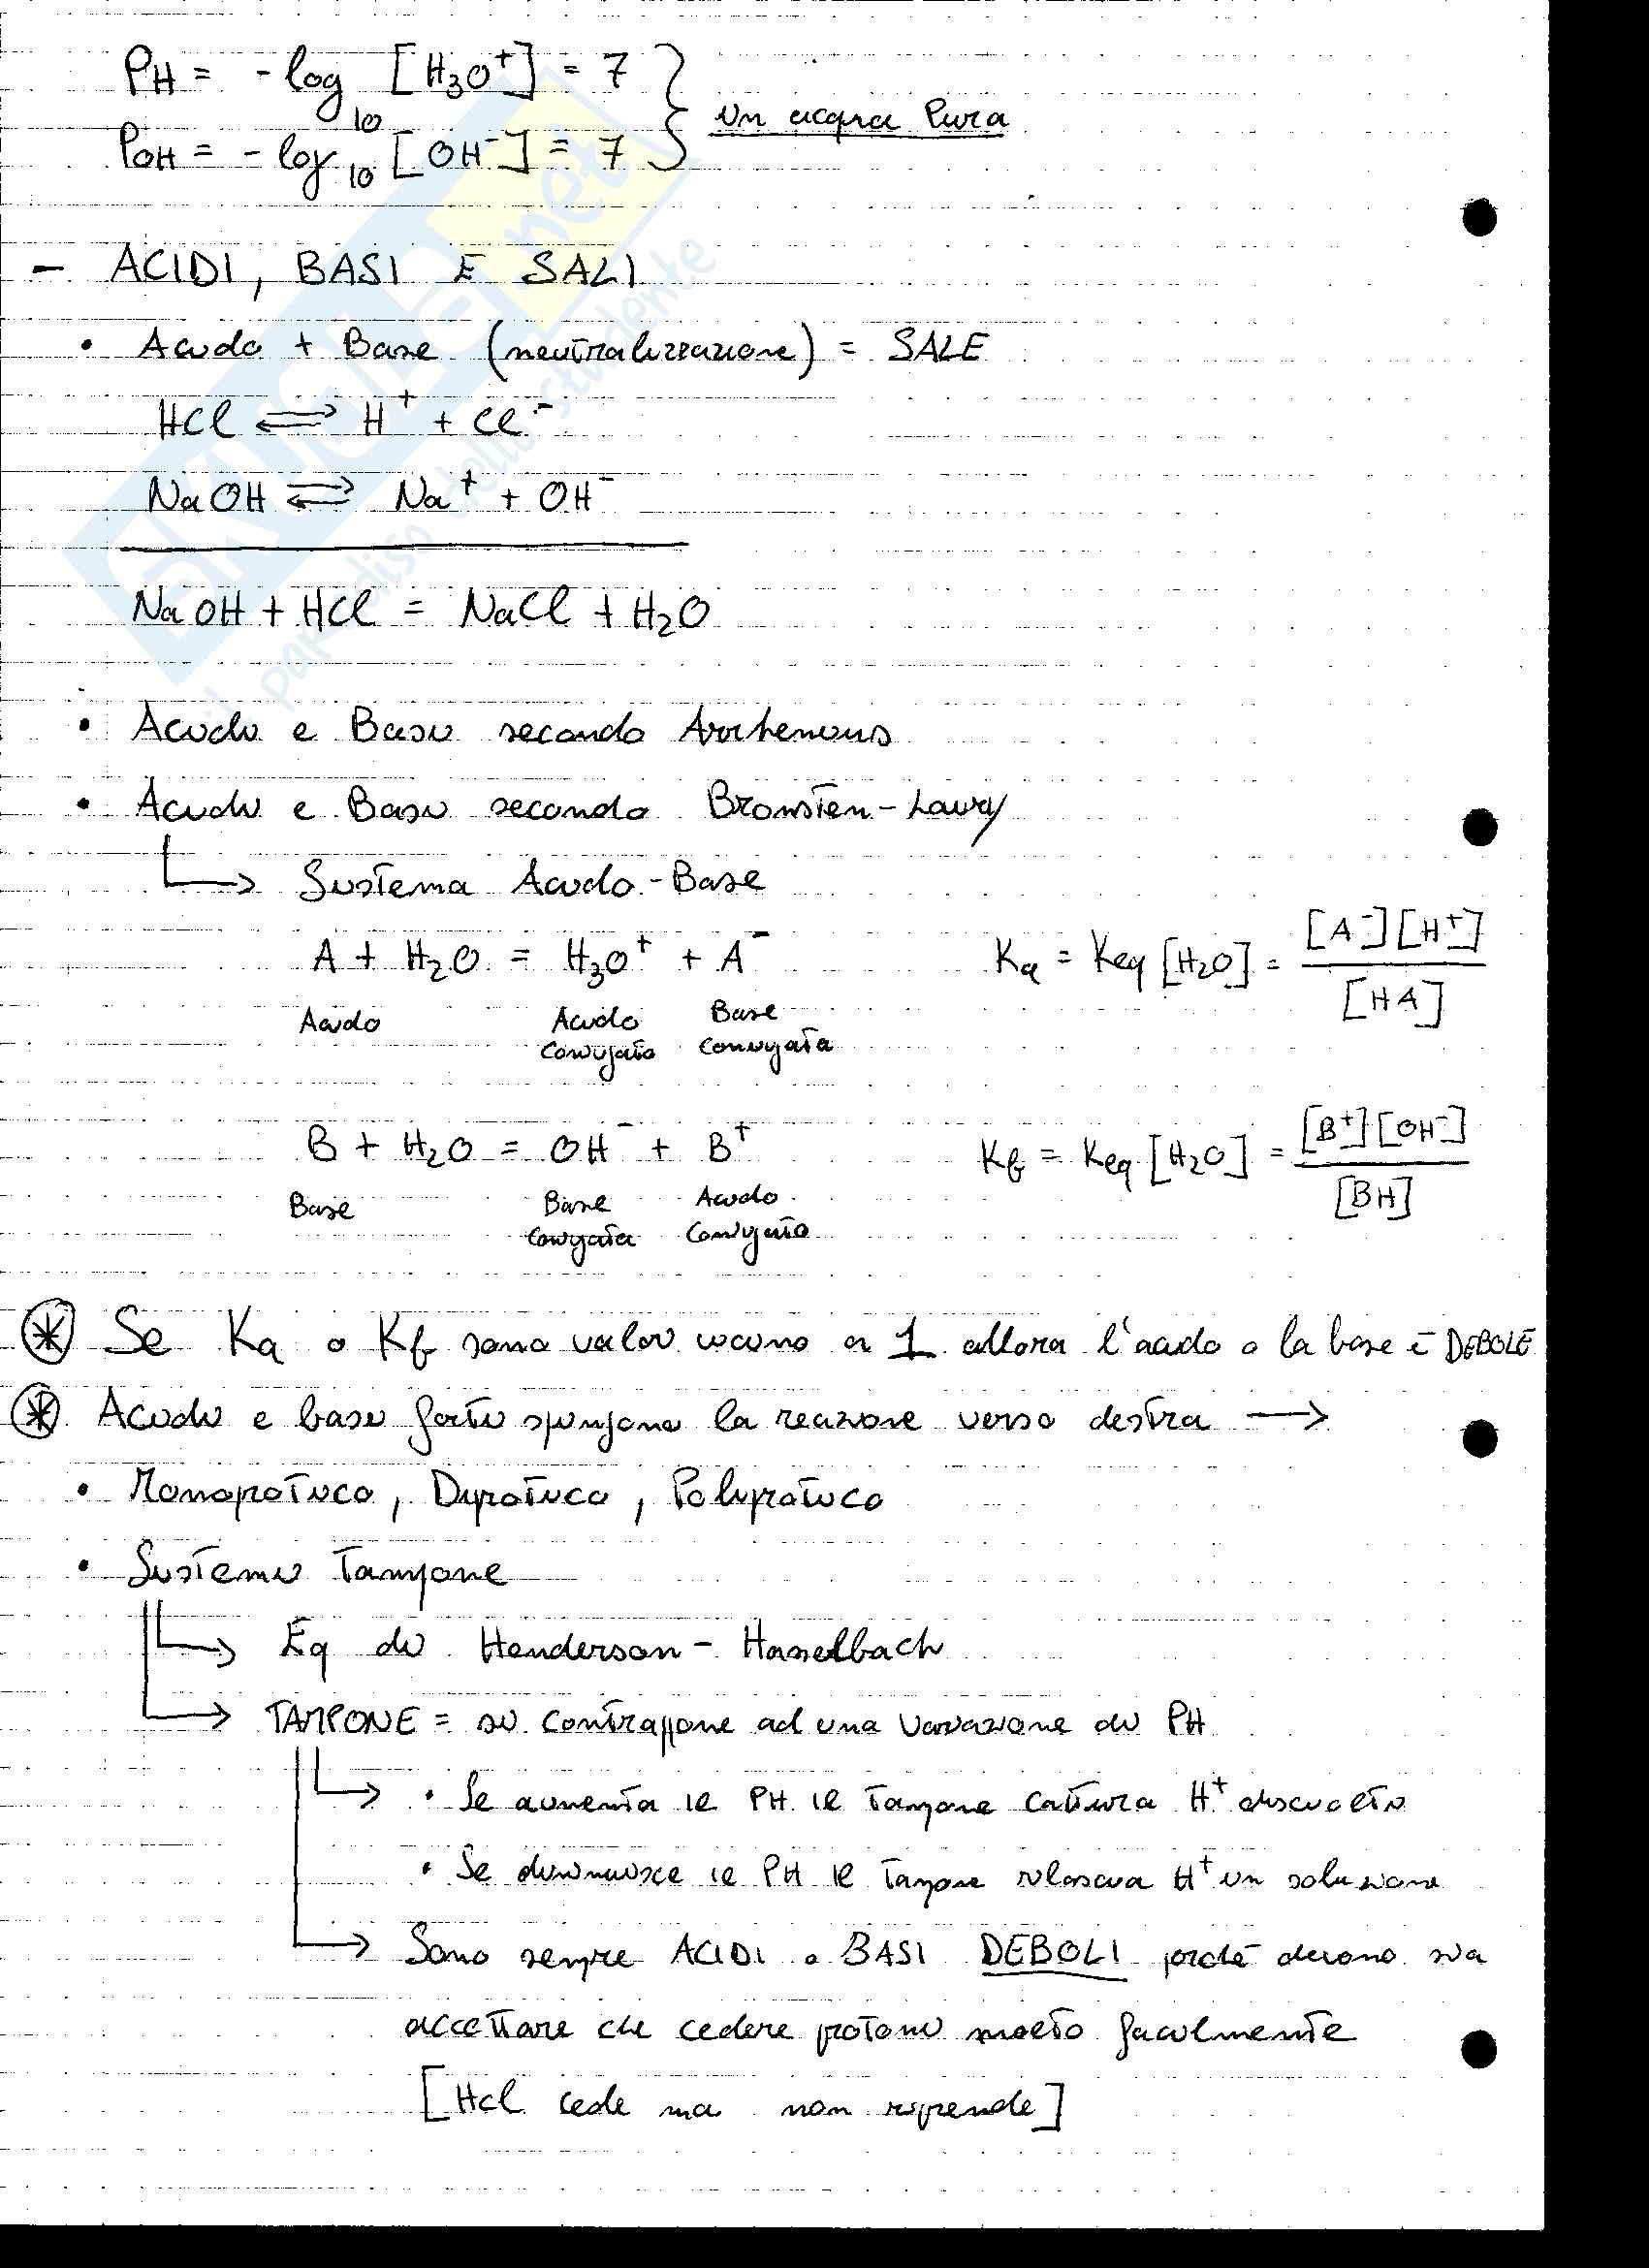 PH = -log10 [H3O+] = 7
POH = -log10 [OH-] = 7
in acqua Pura
- ACIDI, BASI E SALI
• Acido + Base (neutralizzazione) = SALE
HCl ⇌ H+ + Cl-
NaOH ⇌ Na+ + OH-
NaOH + HCl = NaCl + H2O
• Acidi e Basi secondo Arrhenius
• Acidi e Basi secondo Bronsten-Lowry
↳ Sistema Acido-Base
A + H2O = H3O+ + A-
Ka = Keq [H2O] = [A-][H+] / [HA]
Acido Acido Coniugato Base Coniugata
B + H2O = OH- + B+
Kb = Keq [H2O] = [B+][OH-] / [BH]
Base Base Coniugata Acido Coniugato
* Se Ka o Kb sono valori vicino a 1 allora l'acido o la base è DEBOLE
* Acidi e basi forti spingono la reazione verso destra →
• Monoprotico, Diprotico, Poliprotico
• Sistemi Tampone
→ Eq di Henderson-Hasselbach
→ TAMPONE = si contrappone ad una variazione di PH
→ • Se aumenta il PH il Tampone cattura H+ disciolti
• Se diminuisce il PH il Tampone rilascia H+ in soluzione
→ Sono sempre ACIDI o BASI DEBOLI perché devono sia
accettare che cedere protoni molto facilmente
[HCl cede ma non riprende]